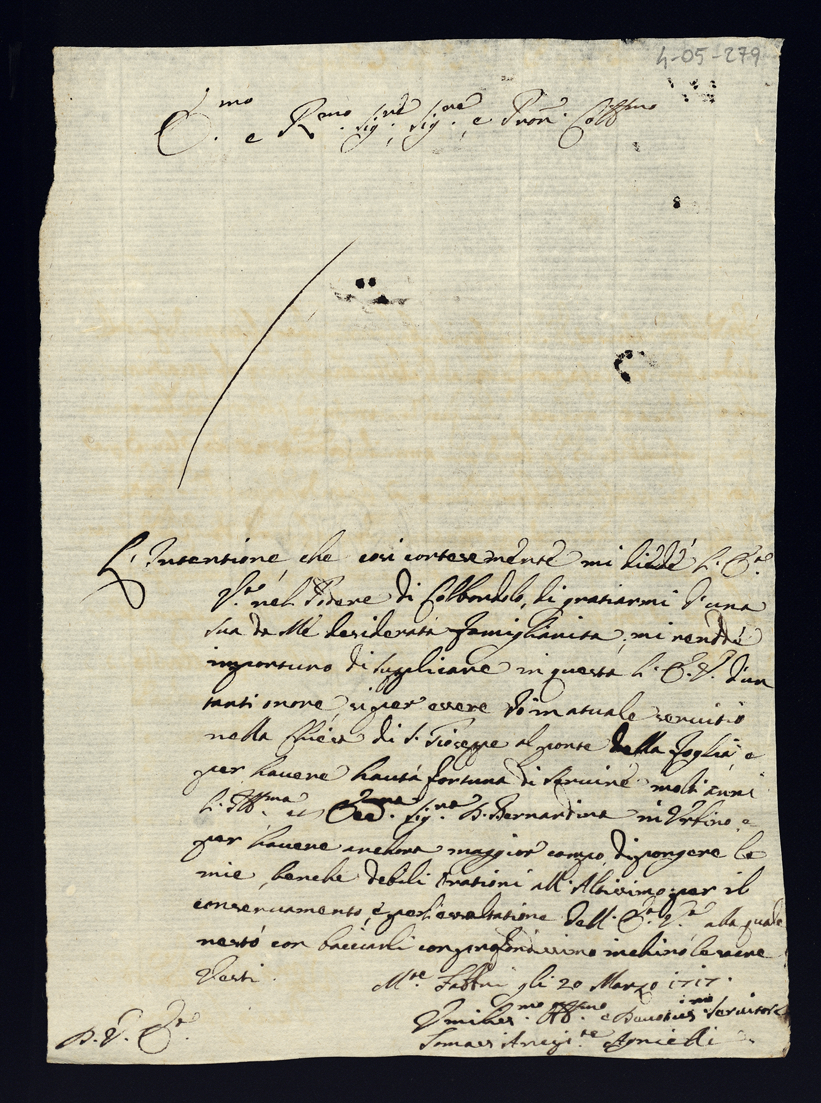 4-05-279
E.mo e R.mo Sig.re, Sig.re, e Pron. Coll.mo
L'Intentione, che così cortesemente mi diede L. E.za
V.ra nel Podere di Colbordolo, di gratiarmi d'una
sua da Me desiderata famiglianita, mi rende
importuno di supplicare in questa L. E. V. d'un
tanto onore, si per essere io in atuale servitio
nella Chiesa di S. Gioseppe al ponte della foglia, e
per havere hauta fortuna di servire molti anni
L. Ill.ma et Ecc.ma Sig.ra D. Bernardina in Urbino, e
per havere anchora maggior campo di porgere le
mie, benche debili Orationi all'Altissimo per il
conservamento, e per l'essaltatione dell'E.za V.ra alla quale
resto con bacciarli con profondissimo inchino le sacre
Vesti.
M.te Fabbri gli 20 Marzo 1717.
D. V. E.za
Umiliss.mo Obb.mo e Devotiss.imo Servitore